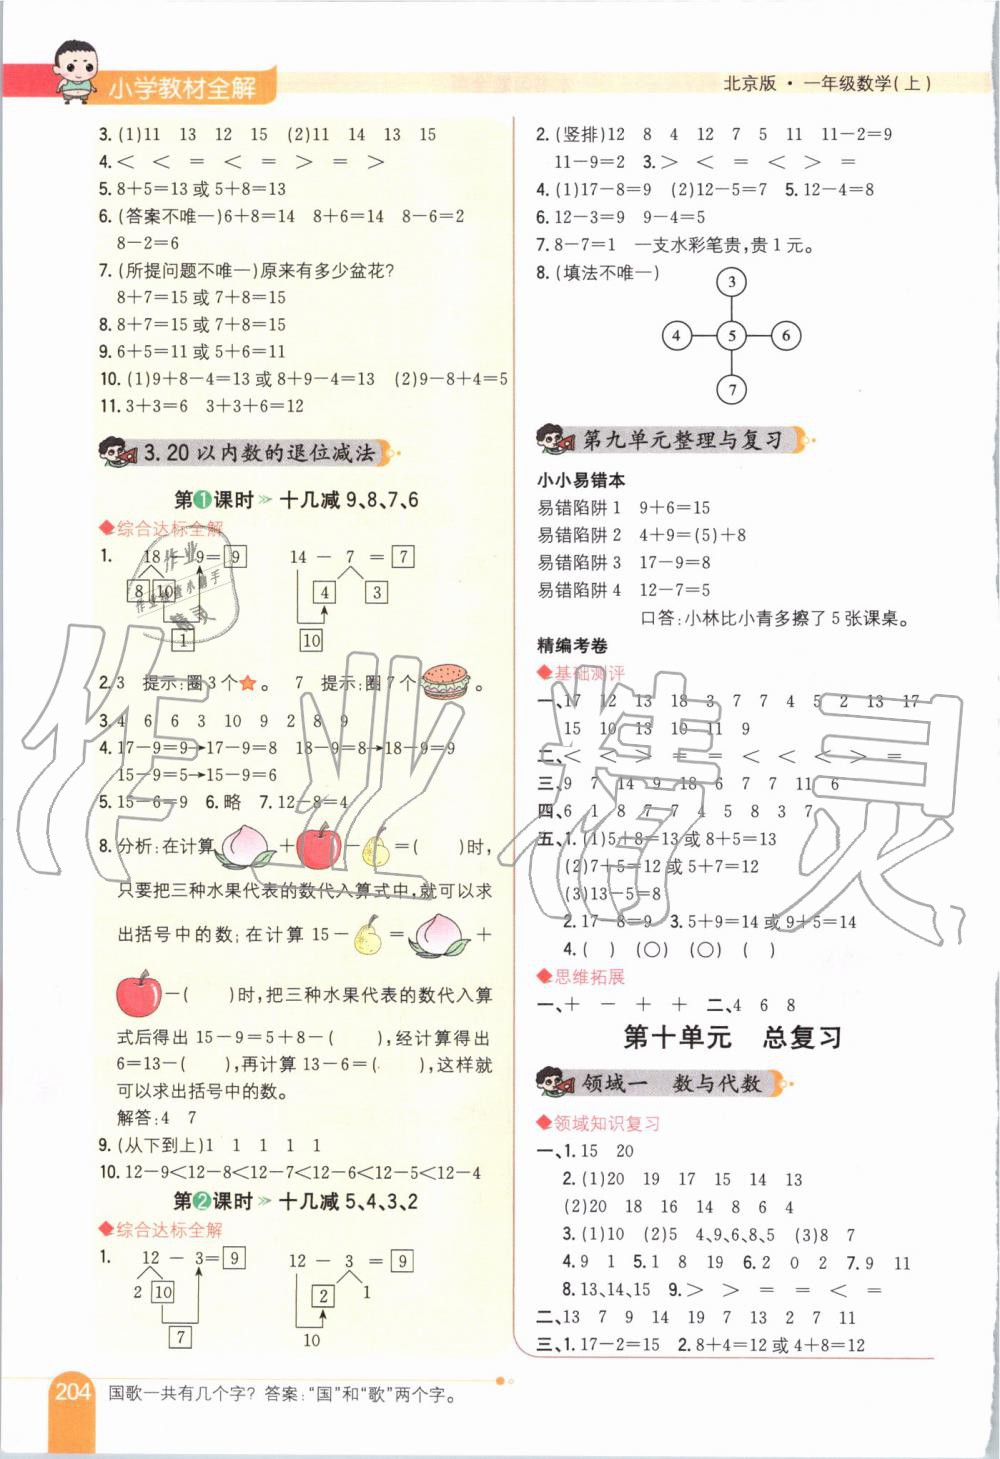 小学教材全解
北京版·一年级数学(上)
3.(1)11 13 12 15 (2)11 14 13 15
4.< < = < = > = >
5.8+5=13或5+8=13
6.(答案不唯一)6+8=14 8+6=14 8-6=2
8-2=6
7.(所提问题不唯一)原来有多少盆花?
8+7=15或7+8=15
8.8+7=15或7+8=15
9.6+5=11或5+6=11
10.(1)9+8-4=13或8+9-4=13 (2)9-8+4=5
11.3+3=6 3+3+6=12
3.20以内数的退位减法
第1课时 » 十几减9、8、7、6
◆综合达标全解
1. 18-9=9 14-7=7
8 10 4 3
1 10
2.3 提示:圈3个。 7 提示:圈7个。
3.4 6 6 3 10 9 2 8 9
4.17-9=9→17-9=8 18-9=8→18-9=9
15-9=5→15-9=6
5.15-6=9 6.略 7.12-8=4
8.分析:在计算 + - =( )时,
只要把三种水果代表的数代入算式中,就可以求
出括号中的数;在计算15- = +
-( )时,把三种水果代表的数代入算
式后得出15-9=5+8-( ),经计算得出
6=13-( ),再计算13-6=( ),这样就
可以求出括号中的数。
解答:4 7
9.(从下到上)1 1 1 1 1
10.12-9<12-8<12-7<12-6<12-5<12-4
第2课时 » 十几减5、4、3、2
◆综合达标全解
1. 12-3=9 12-3=9
2 10 2 1
7 10
2.(竖排)12 8 4 12 7 5 11 11-2=9
11-9=2 3.> < = < > =
4.(1)17-8=9 (2)12-5=7 5.12-4=8
6.12-3=9 9-4=5
7.8-7=1 一支水彩笔贵,贵1元。
8.(填法不唯一)
3
4 5 6
7
第九单元整理与复习
小小易错本
易错陷阱1 9+6=15
易错陷阱2 4+9=(5)+8
易错陷阱3 17-9=8
易错陷阱4 12-7=5
口答:小林比小青多擦了5张课桌。
精编考卷
◆基础测评
一、17 12 13 18 3 7 7 4 5 2 13 17
15 10 13 10 11 9
二、< < > = = < < < > =
三、9 7 14 9 18 6 7 7 11 6
四、6 1 8 7 7 4 5 8 3 7
五、1.(1)5+8=13或8+5=13
(2)7+5=12或5+7=12
(3)13-5=8
2.17-8=9 3.5+9=14或9+5=14
4.( ) (○) (○) ( )
◆思维拓展
一、+ - + + 二、4 6 8
第十单元 总复习
领域一 数与代数
◆领域知识复习
一、1.15 20
2.(1)20 19 17 15 14 13
(2)20 18 16 14 8 6 4
3.(1)10 (2)5 4、9、6、8、5 (3)8 7
4.9 1 5.1 8 19 6.2 0 2 7.9 11
8.13、14、15 9.> > = = < =
二、13 7 9 14 19 7 13 2 7 11
三、1.17-2=15 2.8+4=12或4+8=12
204
国歌一共有几个字? 答案:“国”和“歌”两个字。
作业精灵
作业
作业检查小助手
精灵